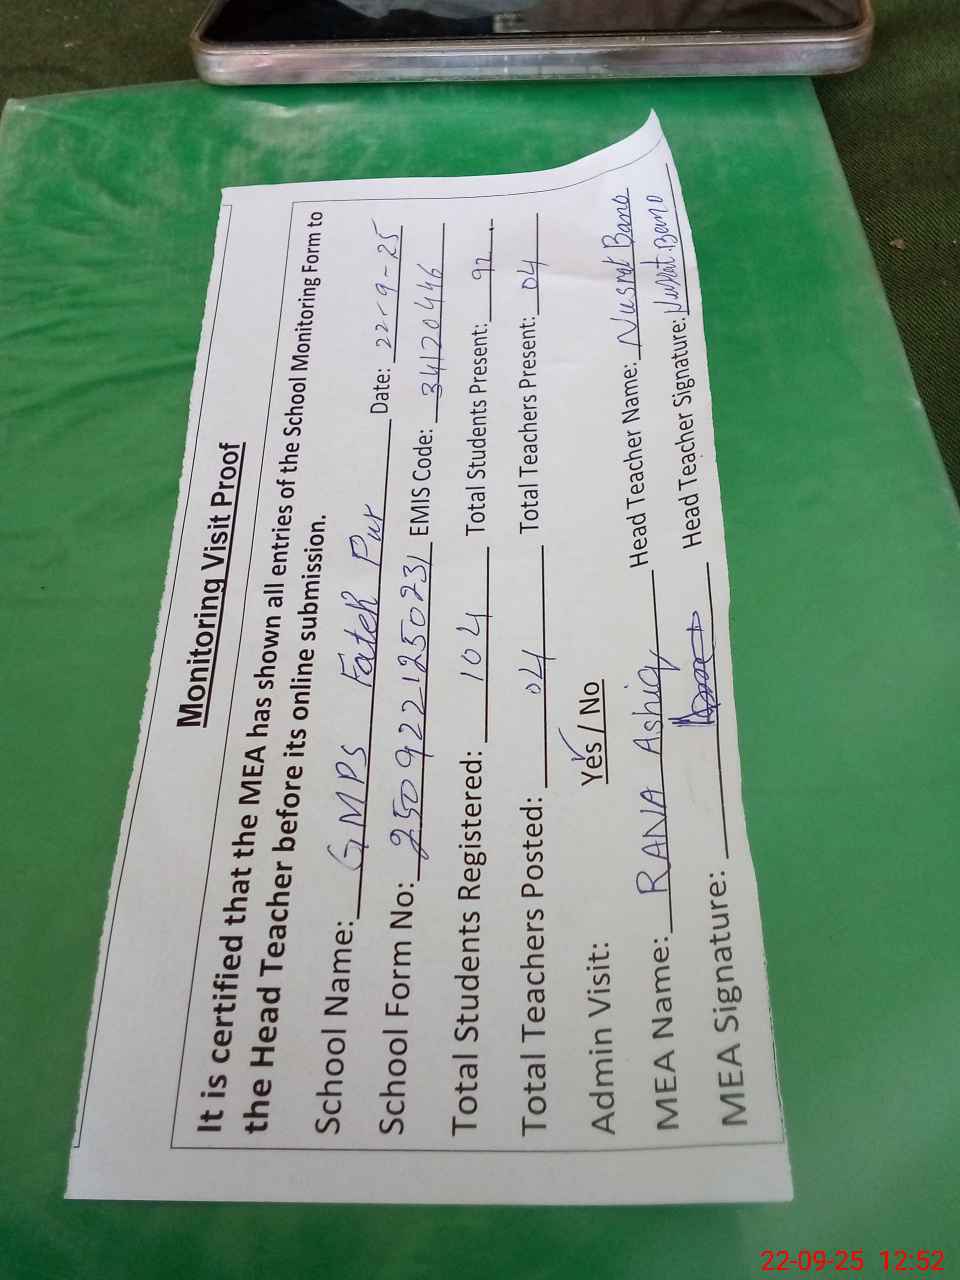 Monitoring Visit Proof
It is certified that the MEA has shown all entries of the School Monitoring Form to
the Head Teacher before its online submission.
School Name: GMPS Fateh Pur Date: 22-9-25
School Form No: 2509221250231 EMIS Code: 34120446
Total Students Registered: 104 Total Students Present: 92
Total Teachers Posted: 04 Total Teachers Present: 04
Admin Visit: Yes / No
MEA Name: RANA Ashiq Head Teacher Name: Nusrat Bano
MEA Signature: Head Teacher Signature: Nusrat Bano
22-09-25 12:52